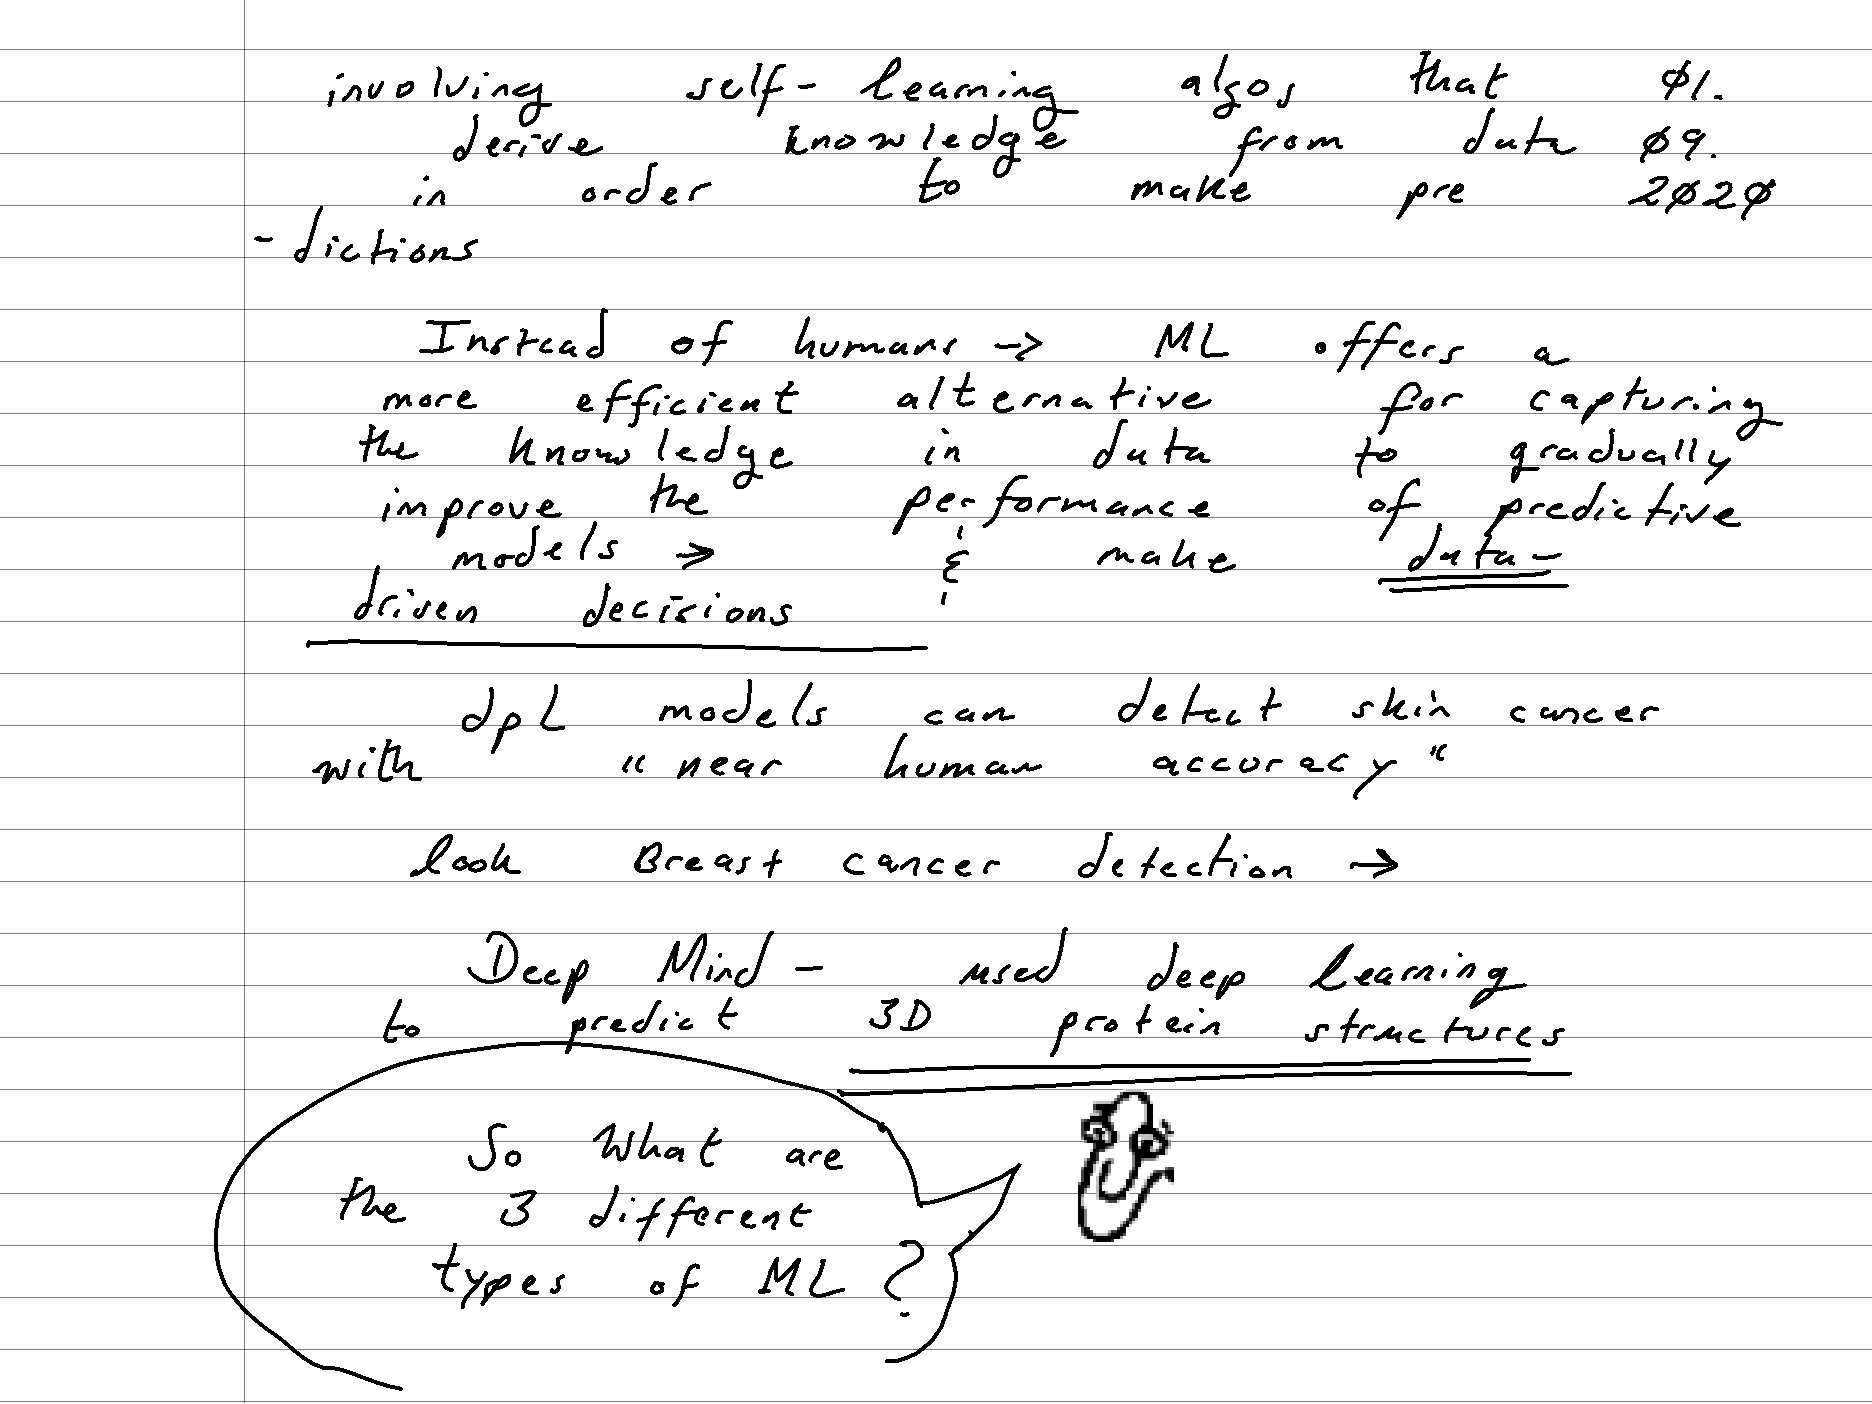 involving self-learning algos that Ø1.
derive knowledge from data Ø9.
in order to make pre 2Ø2Ø
-dictions
Instead of humans -> ML offers a
more efficient alternative for capturing
the knowledge in data to gradually
improve the performance of predictive
models -> & make data-
driven decisions
dpL models can detect skin cancer
with “near human accuracy“
look Breast cancer detection ->
Deep Mind - used deep learning
to predict 3D protein structures
So What are
the 3 different
types of ML?